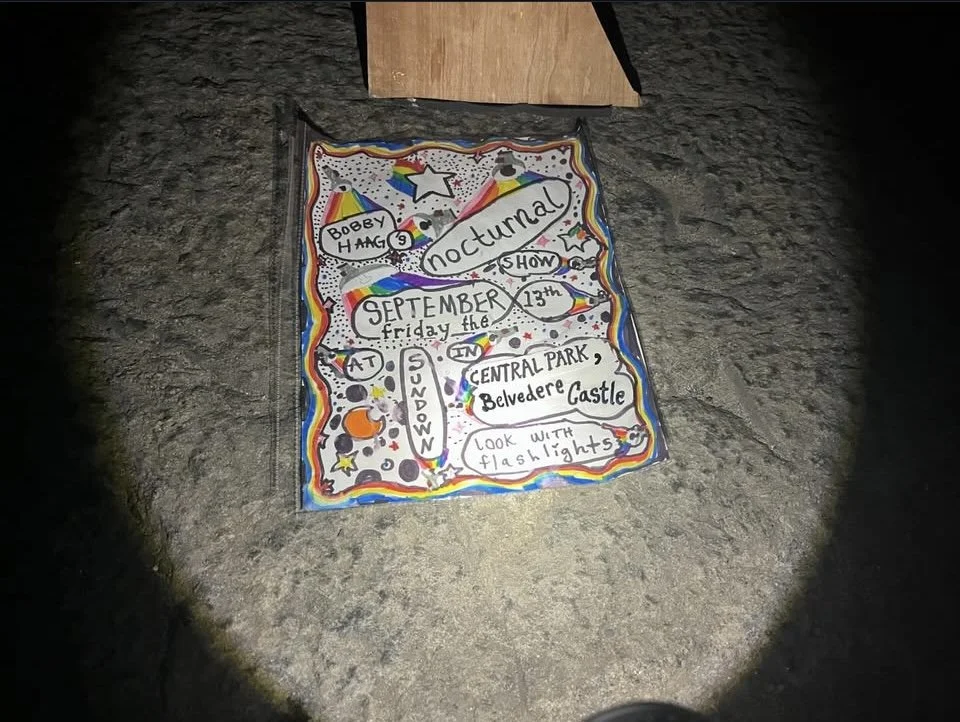 BOBBY
HAAG'S
nocturnal
SHOW
SEPTEMBER
friday the 13th
AT
SUNDOWN
IN
CENTRAL PARK,
Belvedere Castle
LOOK WITH
flashlights